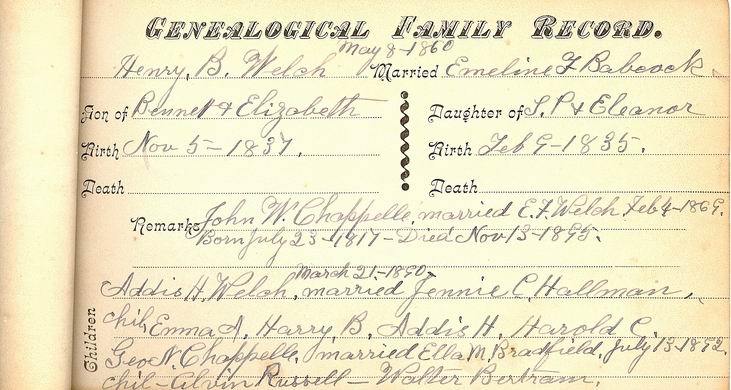 GENEALOGICAL FAMILY RECORD.
May 8-1860
Henry, B. Welch Married Emeline F Babcock
Son of Bennet & Elizabeth Daughter of S. P. & Eleanor
Birth Nov 5-1837. Birth Feb 9-1835.
Death Death
Remarks John W. Chappelle, married E. F. Welch Feb 4-1869.
Born July 23-1817-Died Nov 13-1895.
March 21-1890
Addis H. Welch, married Jennie C. Hallman,
Children
chil, Emma A, Harry B, Addis H, Harold C.
Geo N. Chappelle, married Ella M. Bradfield, July 13-1892.
chil-Alvin Russell-Walter Bertram,